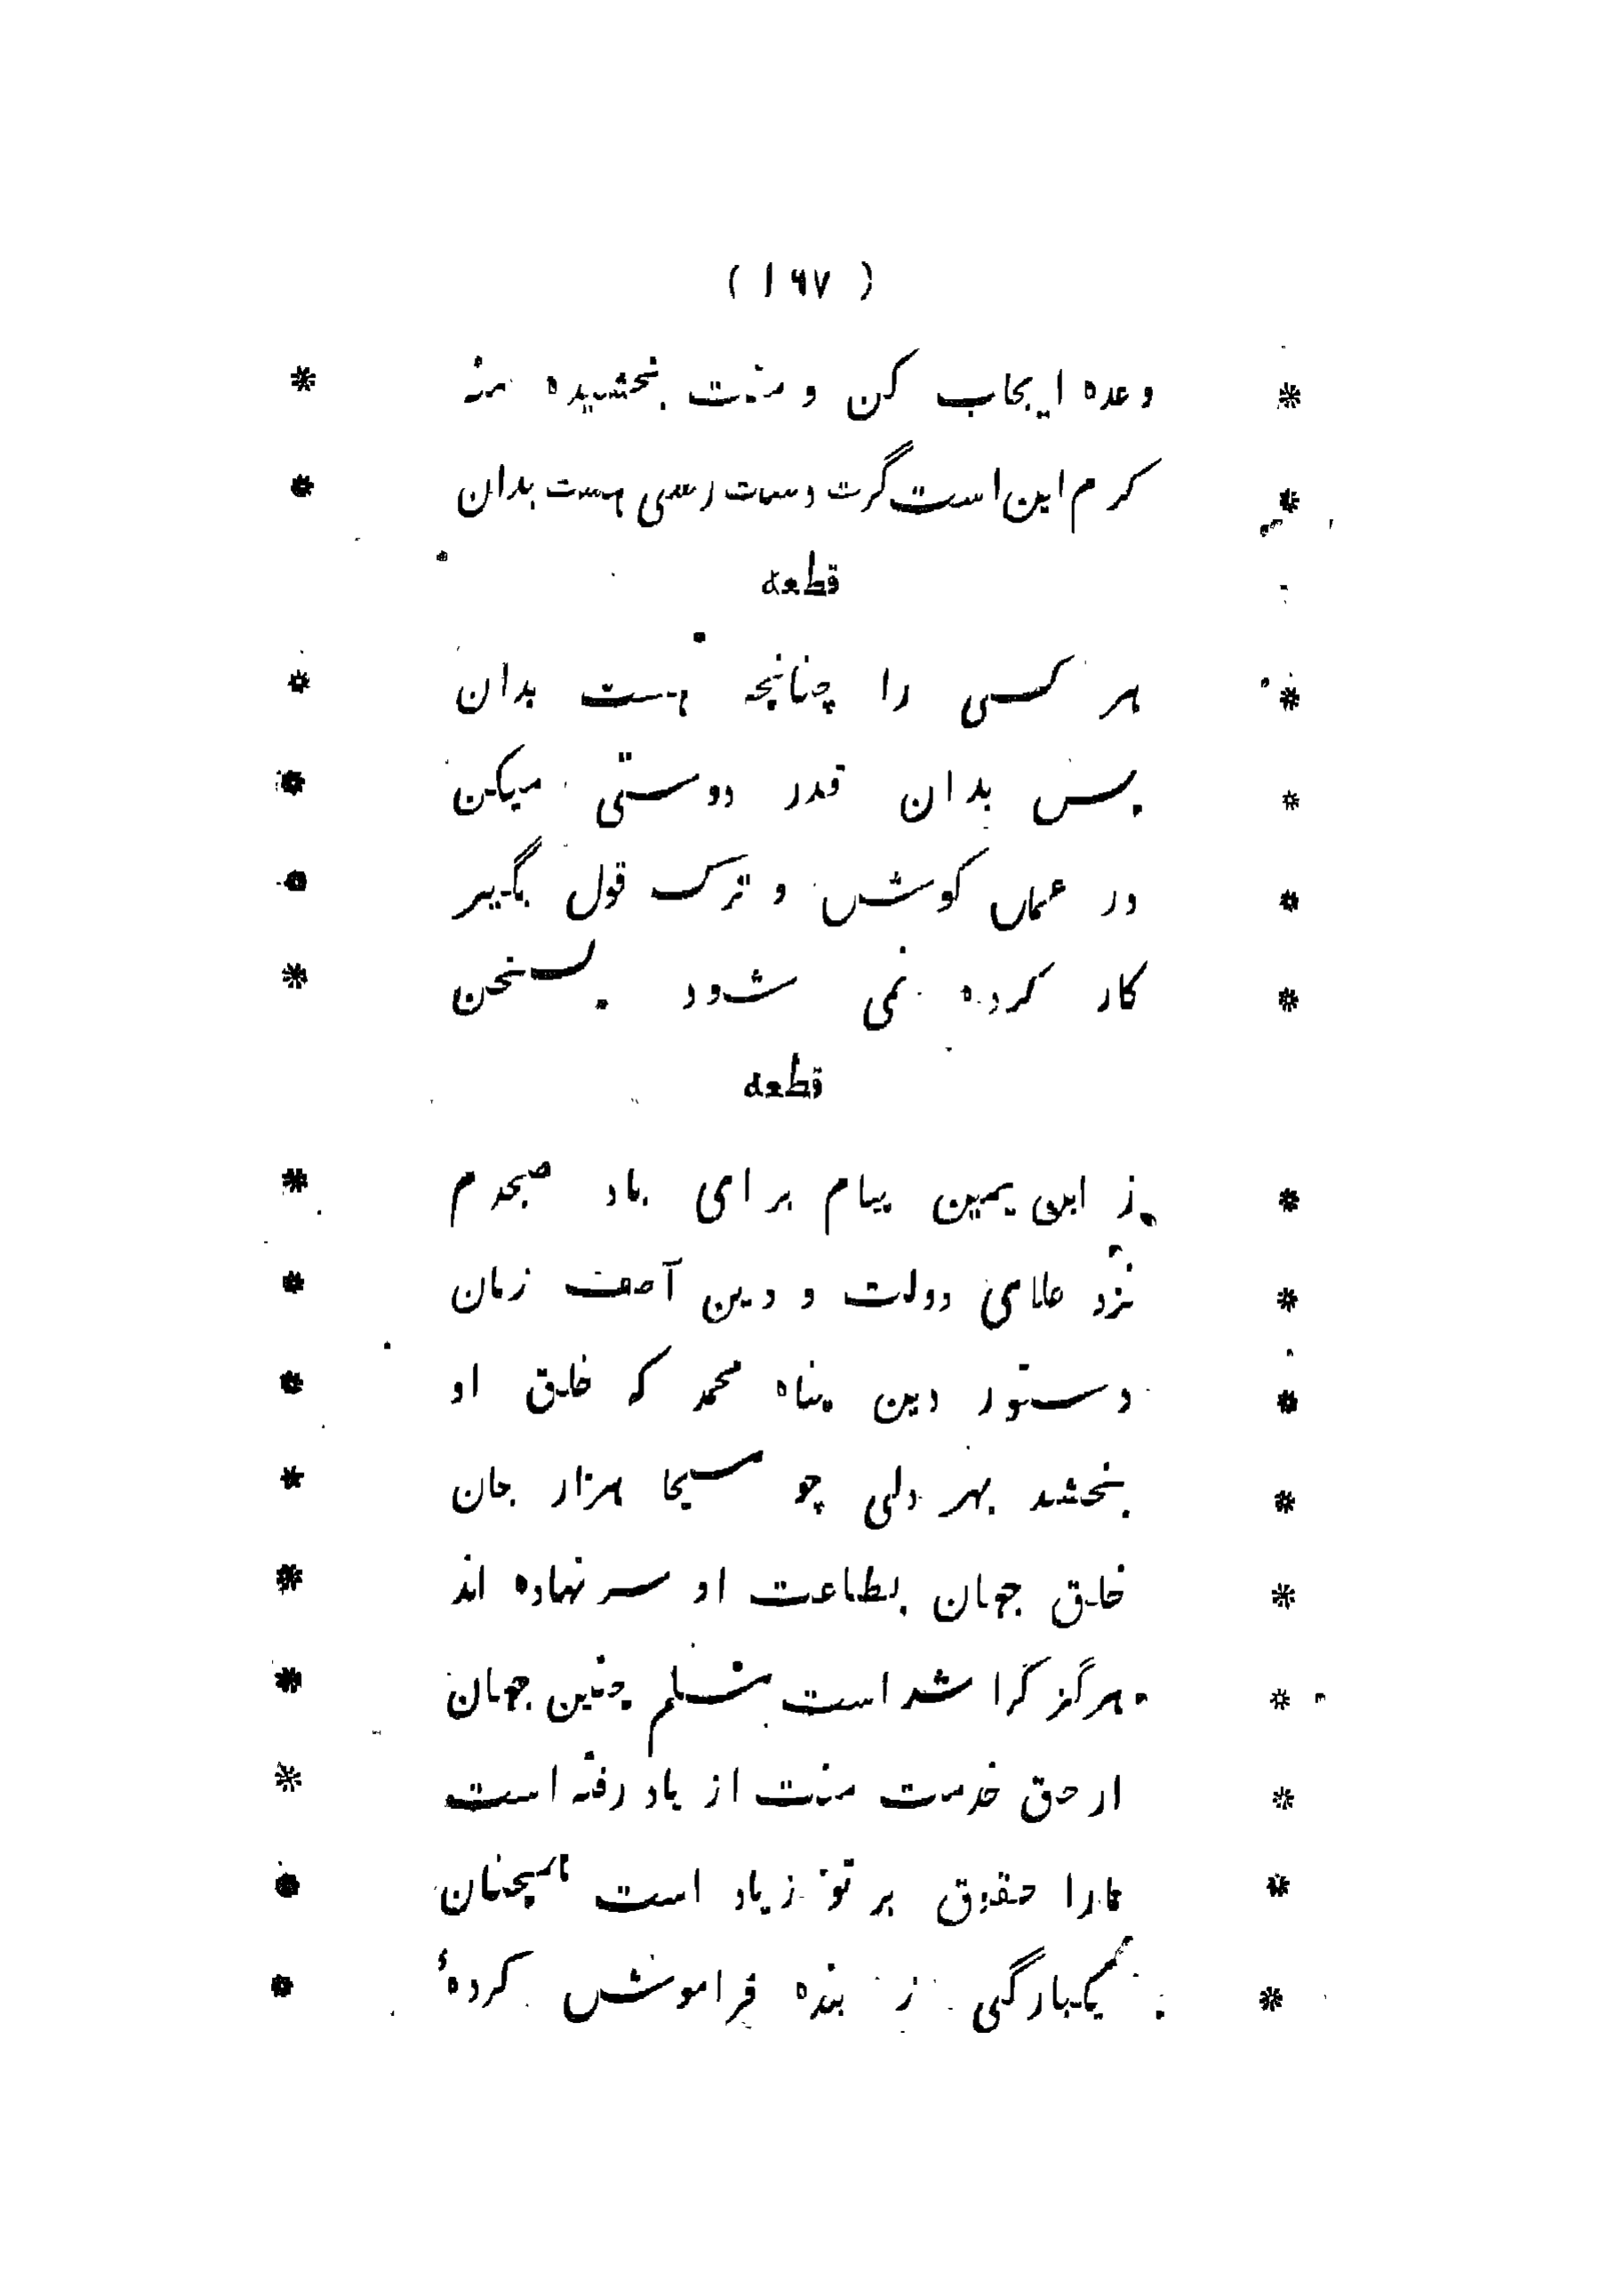 ( ۱۶۷ )
* وعده ایجاب کن و منت بخشیده منه *
* کرم این است گرت دست رسی هست بدان *
قطعه
* هر کسی را چنانچه هست بدان *
* پس بدان قدر دوستی میکن *
* در عمل کوش و ترک قول بگیر *
* کار کرده نمی شود بسخن *
قطعه
* ز ابن یمین پیام بر ای باد صبحدم *
* نزد علای دولت و دین آصف زمان *
* دستور دین پناه محمد که خلق او *
* بخشد بهر دلی چو مسیحا هزار جان *
* خلق جهان بطاعت او سر نهاده اند *
* هرگز کرا شد است مسلم چنین جهان *
* ار حق خدمت منت از یاد رفته است *
* مارا حقوق بر تو زیاد است همچنان *
* یکبارگی ز بنده فراموش کردهٔ *